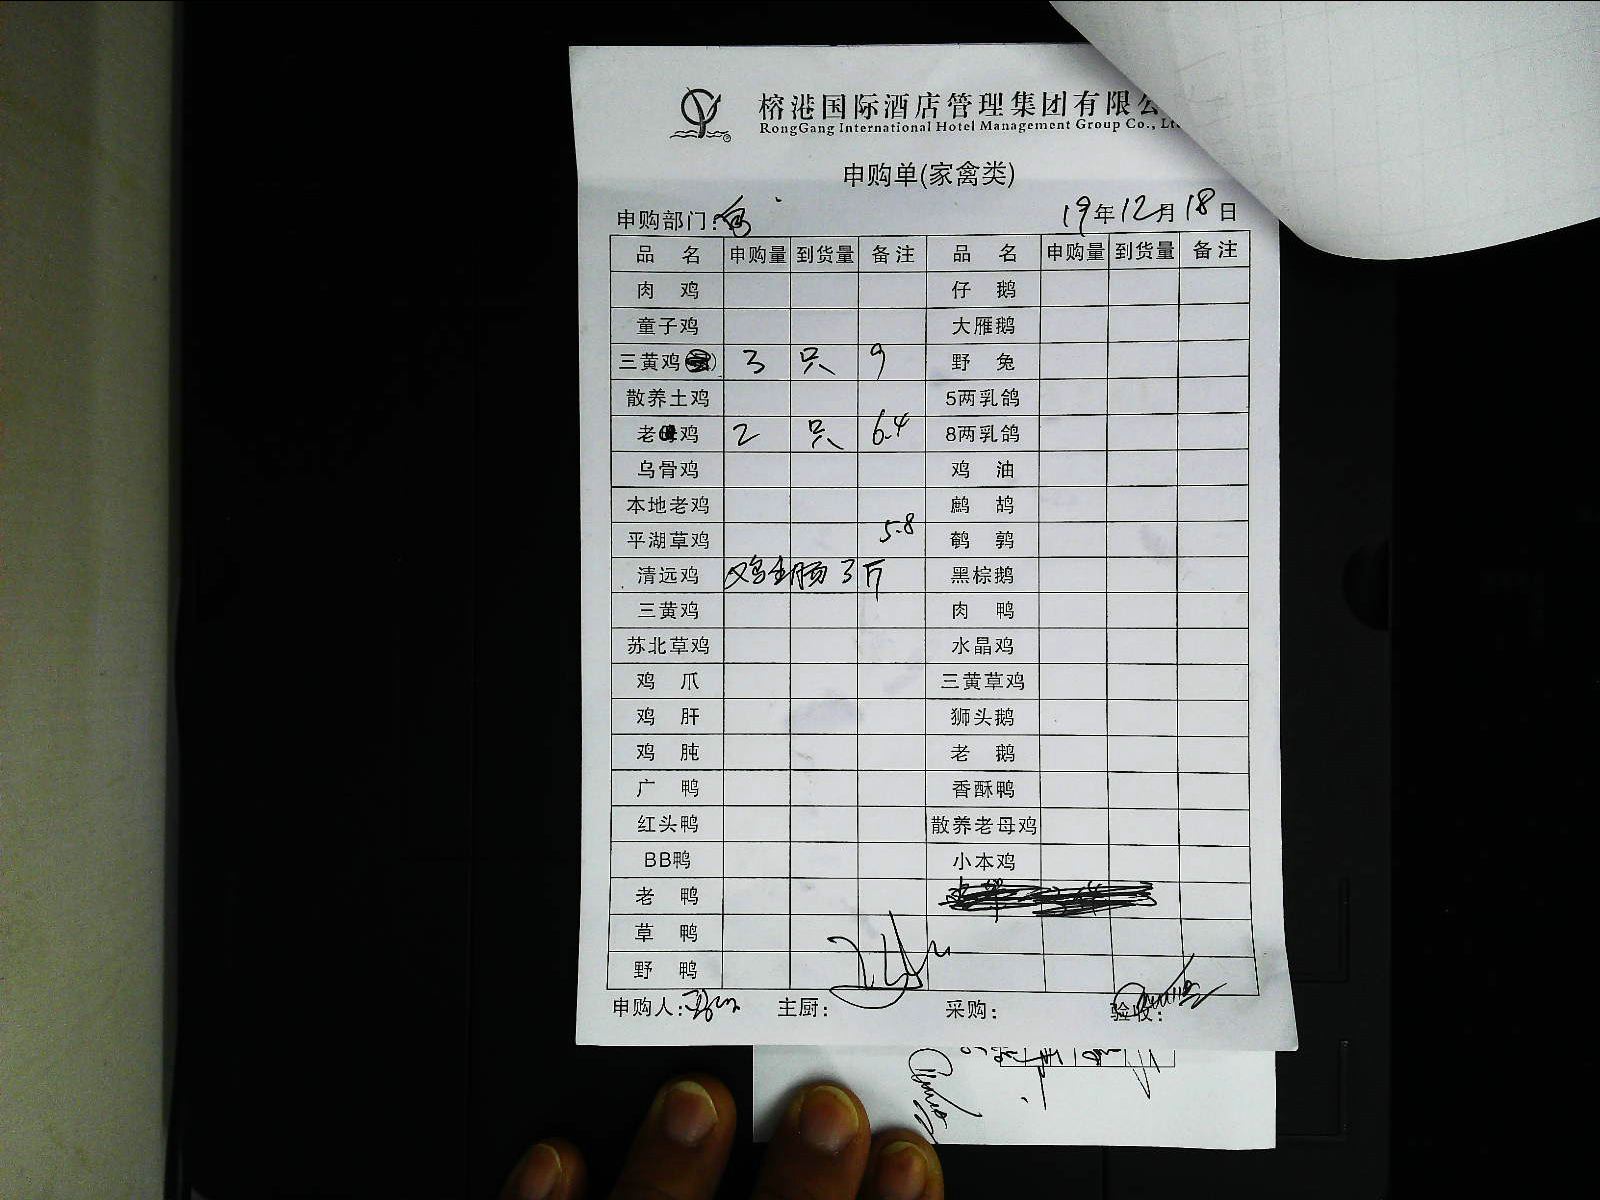 榕港国际酒店管理集团有限公
RongGang International Hotel Management Group Co., Lt
申购单(家禽类)
申购部门: 19年12月18日
品名 申购量 到货量 备注 品名 申购量 到货量 备注
肉鸡 仔鹅
童子鸡 大雁鹅
三黄鸡 3 只 9 野兔
散养土鸡 5两乳鸽
老鸡 2 只 6.4 8两乳鸽
乌骨鸡 鸡油
本地老鸡 鹧鸪
平湖草鸡 5.8 鹌鹑
清远鸡 鸡生肠3斤 黑棕鹅
三黄鸡 肉鸭
苏北草鸡 水晶鸡
鸡爪 三黄草鸡
鸡肝 狮头鹅
鸡肫 老鹅
广鸭 香酥鸭
红头鸭 散养老母鸡
BB鸭 小本鸡
老鸭
草鸭
野鸭
申购人: 主厨: 采购: 验收: